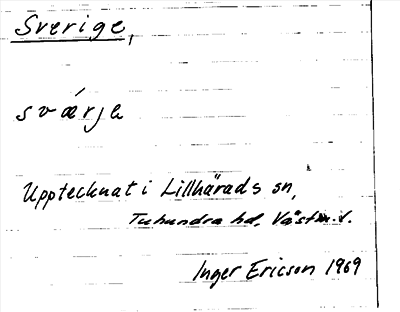 Sverige,
sværje
Upptecknat i Lillhärads sn,
Tuhundra hd, Västm.l.
Inger Ericson 1969